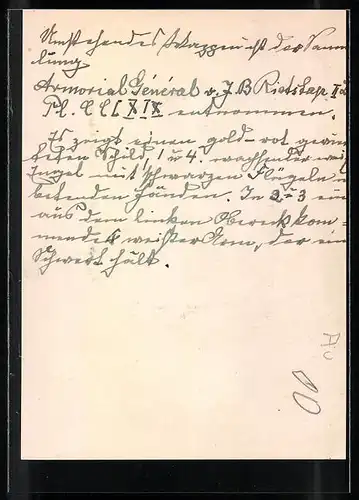 Umstehendes Wappen ist der Samm
lung
Armorial Général v. J B Rietstap II
Pl. CCLXIX entnommen.
Es zeigt einen gold-rot gevier
teten Schild, 1 u 4.
Engel mit schwarzen Flügeln u
betenden Händen. In 2-3 ein
aus dem linken Obereck kom-
mender weißer Arm, der ein
Schwert hält.